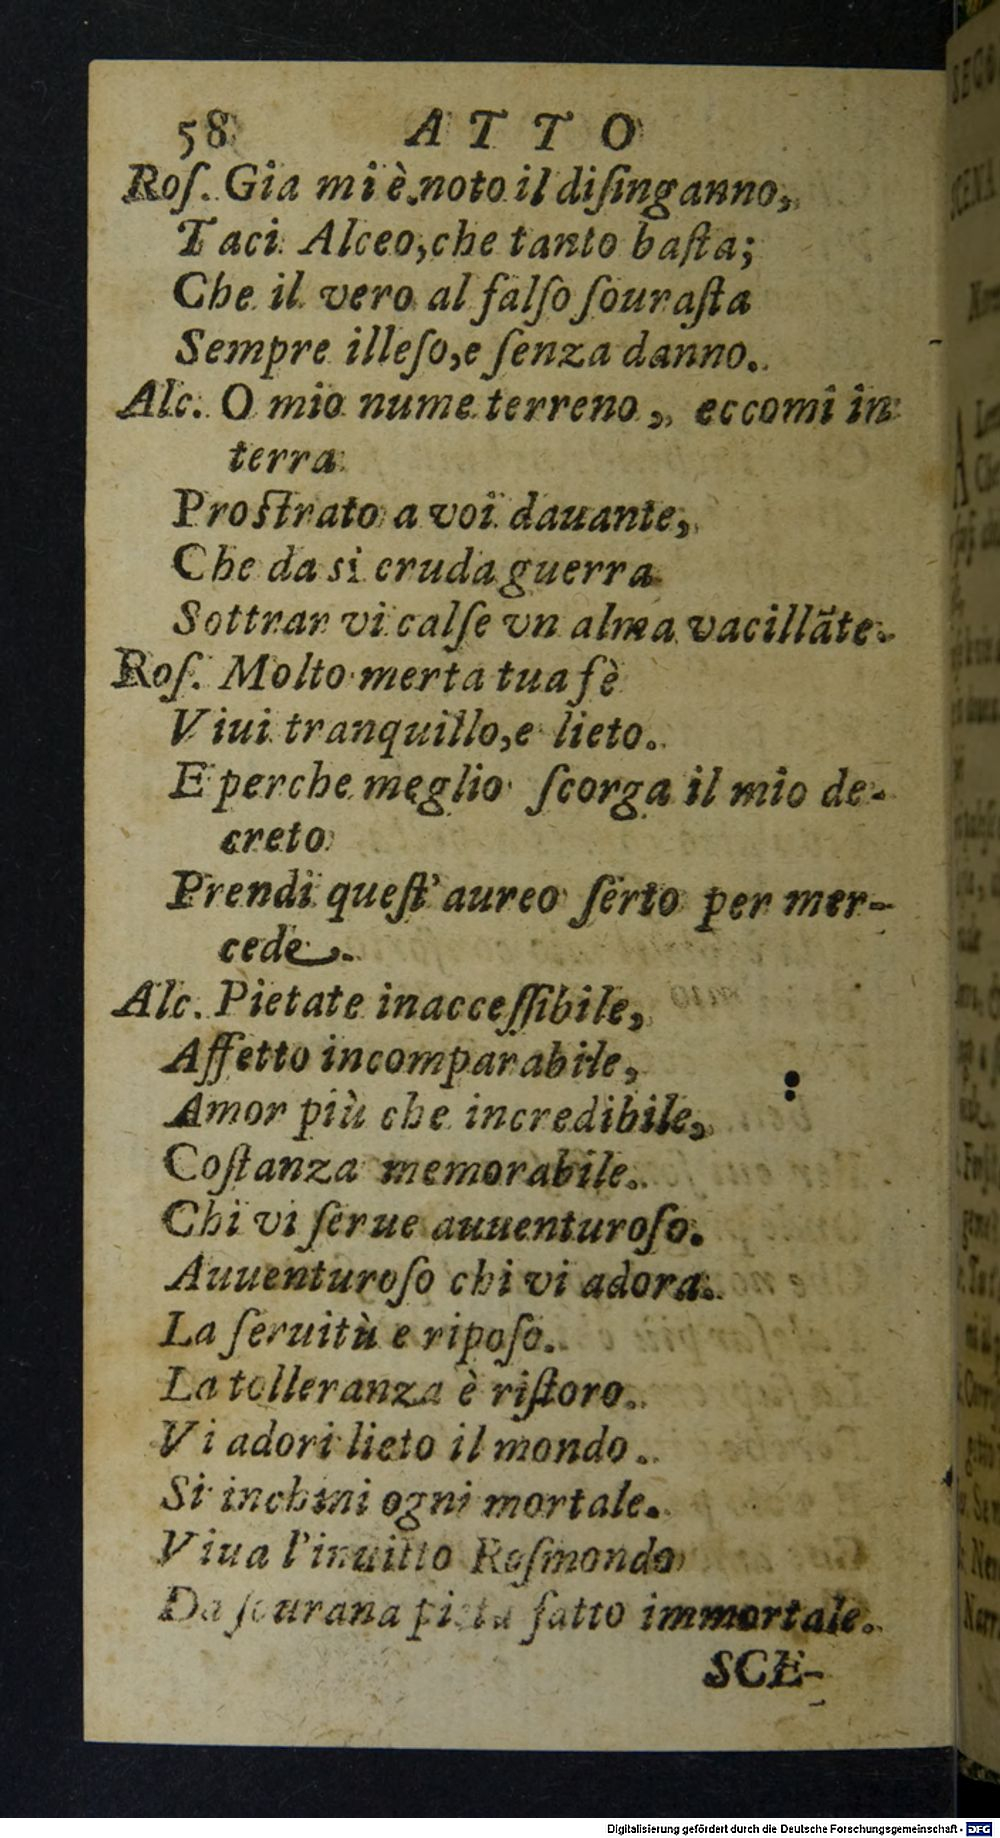 58 ATTO
Roſ. Gia mi è noto il diſinganno,
Taci Alceo, che tanto baſta;
Che il vero al falſo ſouraſta
Sempre illeſo, e ſenza danno.
Alc. O mio nume terreno, eccomi in
terra
Proſtrato a voi dauante,
Che da si cruda guerra
Sottrar vi calſe vn alma vacillãte.
Roſ. Molto merta tua fè
Viui tranquillo, e lieto.
E perche meglio ſcorga il mio de-
creto
Prendi queſt' aureo ſerto per mer-
cede.
Alc. Pietate inacceſſibile,
Affetto incomparabile,
Amor più che incredibile,
Coſtanza memorabile.
Chi vi ſerue auuenturoſo.
Auuenturoſo chi vi adora.
La ſeruitù e ripoſo.
La tolleranza è riſtoro.
Vi adori lieto il mondo.
Si inchini ogni mortale.
Viua l'inuitto Roſmondo
Da ſourana pieta fatto immortale.
SCE-
Digitalisierung gefördert durch die Deutsche Forschungsgemeinschaft - DFG